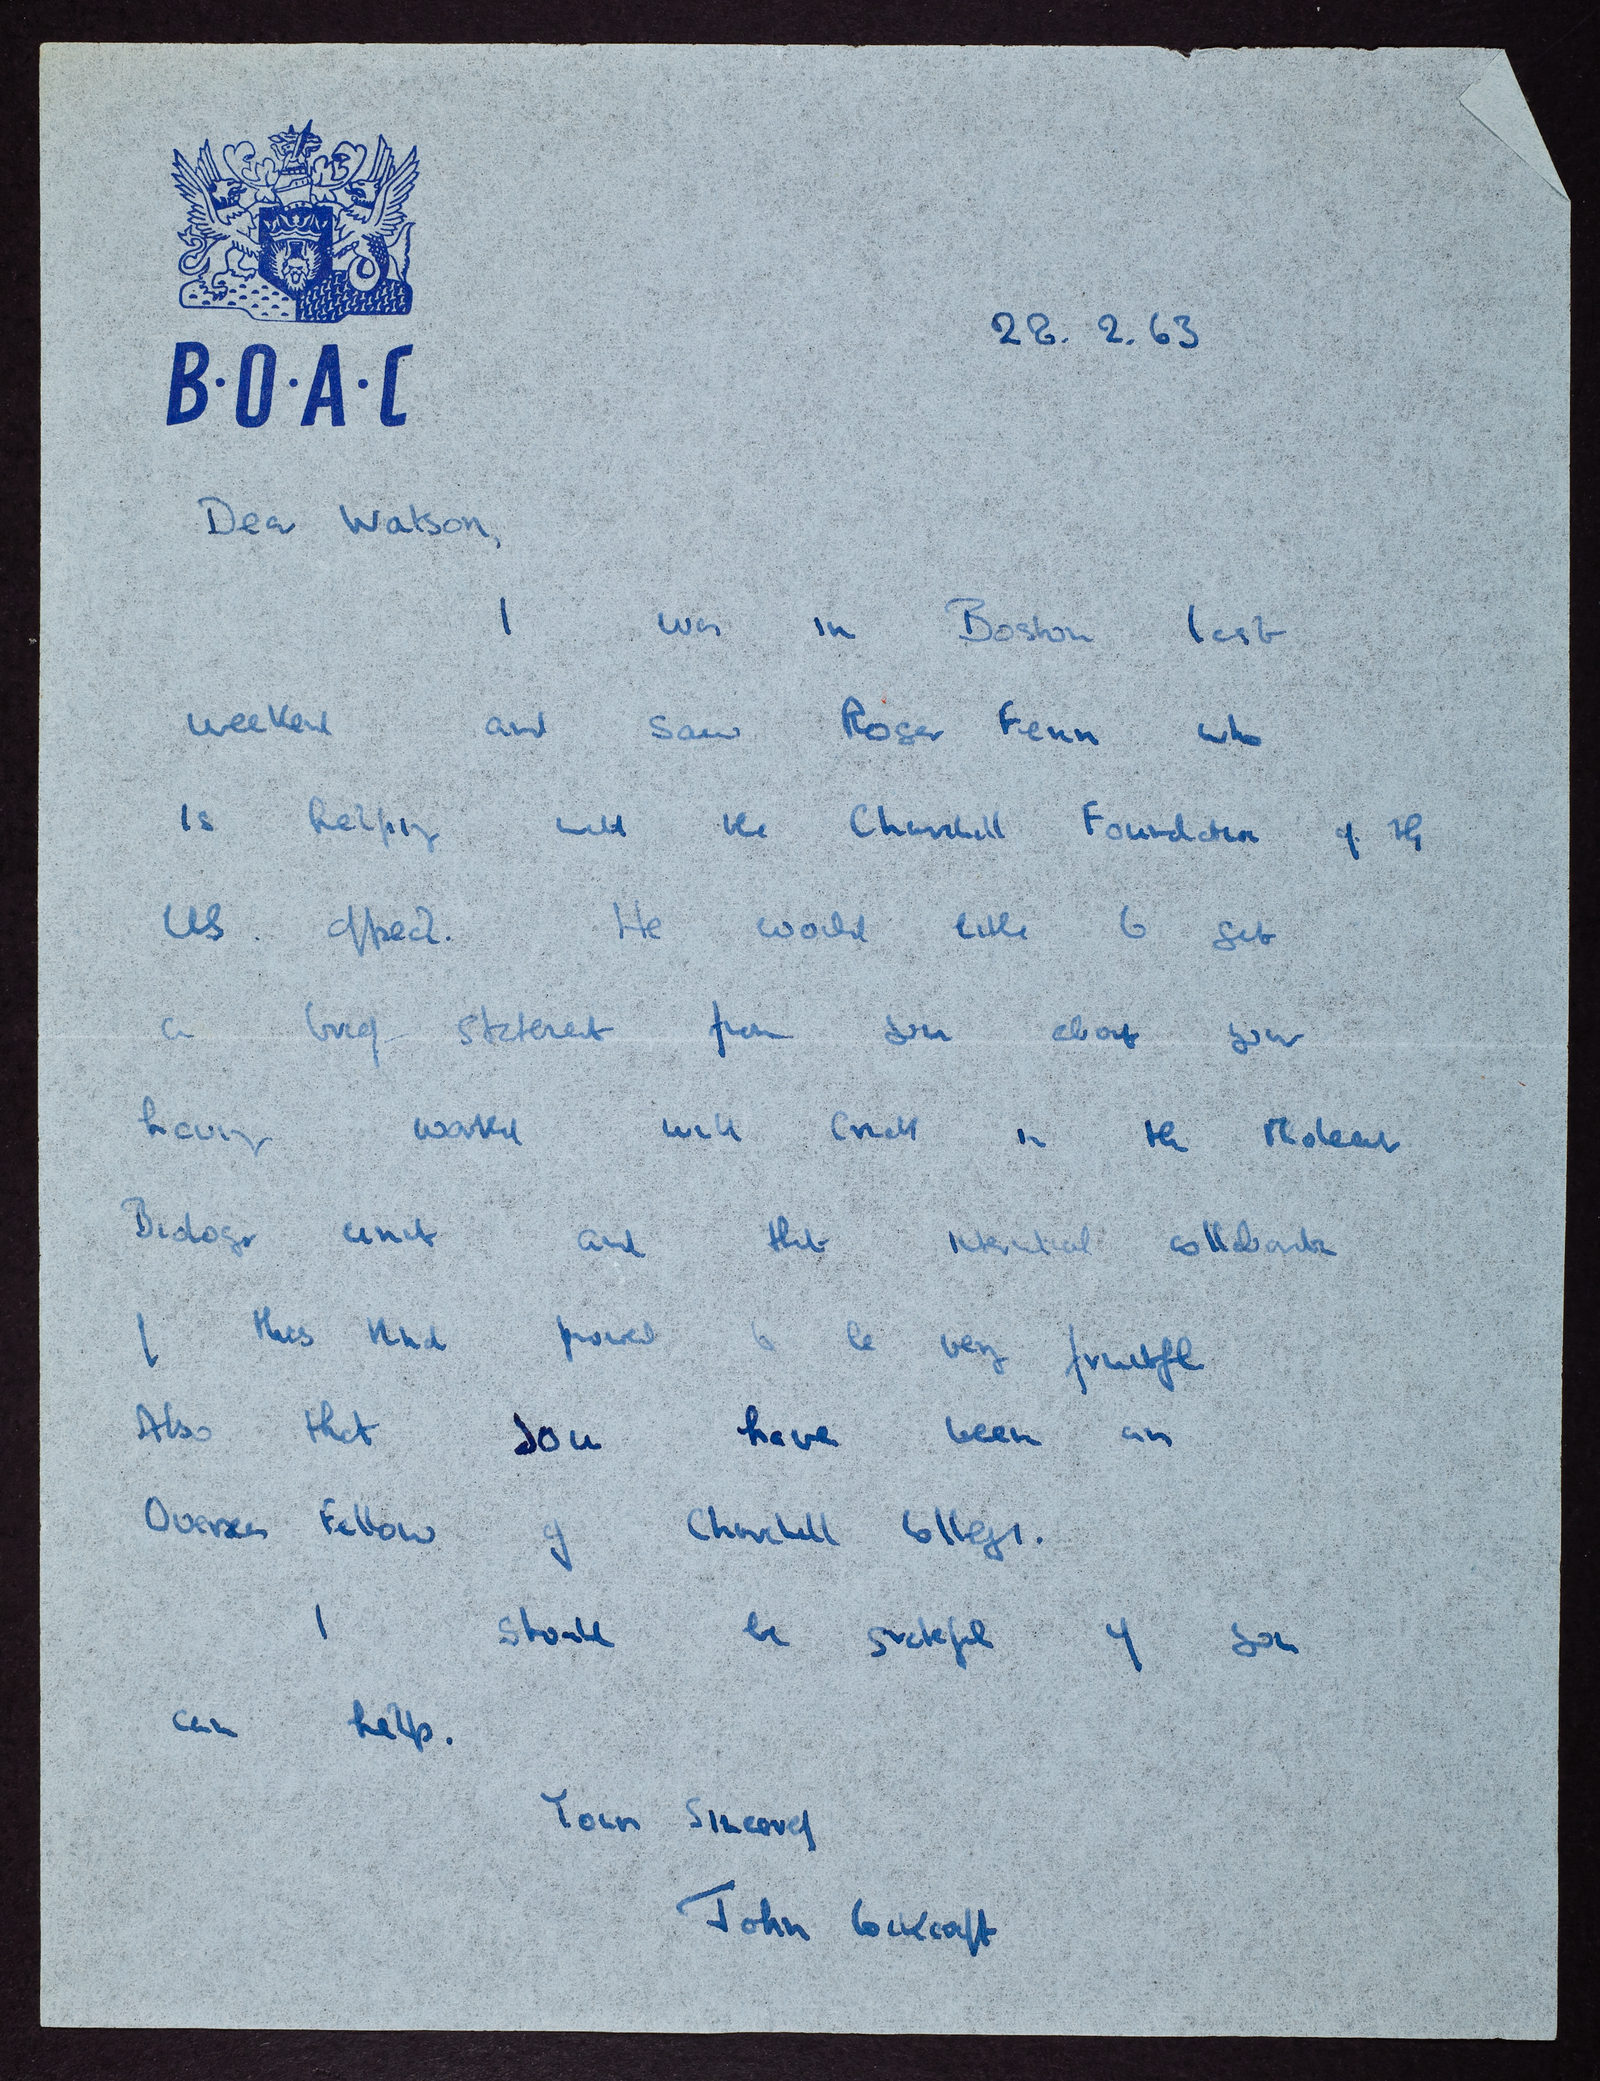 B·O·A·C
28. 2. 63
Dear Watson,
I was in Boston last
weekend and saw Roger Fenn who
is helping with the Churchill Foundation of the
US. appeal. He would like to get
a brief statement from you about your
having worked with Crick in the Molecular
Biology unit and that international collaboration
of this kind proved to be very fruitful
Also that you have been an
Overseas Fellow of Churchill College.
I should be grateful if you
can help.
Yours Sincerely
John Cockcroft